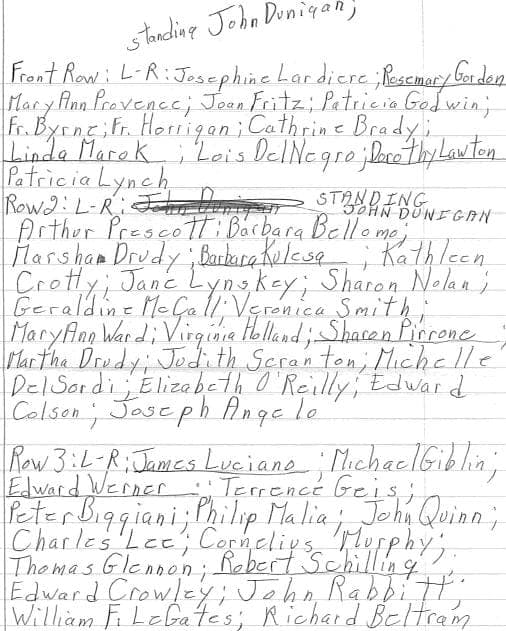 standing John Dunigan;
Front Row: L-R: Josephine Lardiere; Rosemary Gordon
Mary Ann Provence; Joan Fritz; Patricia Godwin;
Fr. Byrne; Fr. Horrigan; Cathrine Brady;
Linda Marok ; Lois DelNegro; Dorothy Lawton
Patricia Lynch
Row2: L-R: John Dunigan STANDING
JOHN DUNIGAN
Arthur Prescott; Barbara Bellomo;
Marsha Drudy; Barbara Kulesa ; Kathleen
Crotty; Jane Lynskey; Sharon Nolan;
Geraldine McCall; Veronica Smith;
Mary Ann Ward; Virginia Holland; Sharon Pirrone
Martha Drudy; Judith Scranton; Michelle
DelSordi; Elizabeth O'Reilly; Edward
Colson; Joseph Angelo
Row 3: L-R; James Luciano ; Michael Giblin;
Edward Werner ; Terrence Geis;
Peter Biggiani; Philip Malia; John Quinn;
Charles Lee; Cornelius Murphy;
Thomas Glennon; Robert Schilling ;
Edward Crowley; John Rabbitt;
William F. LeGates; Richard Beltram